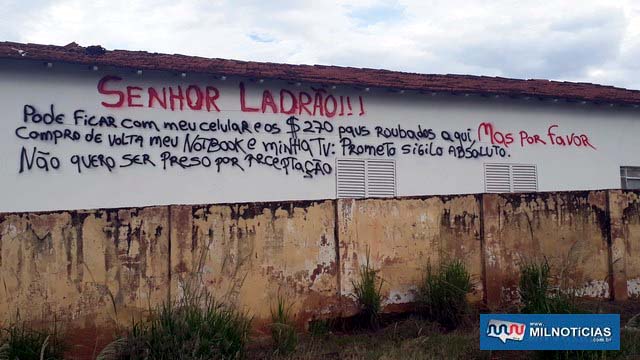 SENHOR LADRÃO!!!
PODE FICAR COM MEU CELULAR E OS $ 270 PAUS ROUBADOS AQUÍ, MAS POR FAVOR
COMPRO DE VOLTA MEU NOTBOOK E MINHA TV: PROMETO SIGILO ABSOLUTO.
NÃO QUERO SER PRESO POR RECEPTAÇÃO
MILNOTÍCIAS
www.milnoticias.com.br